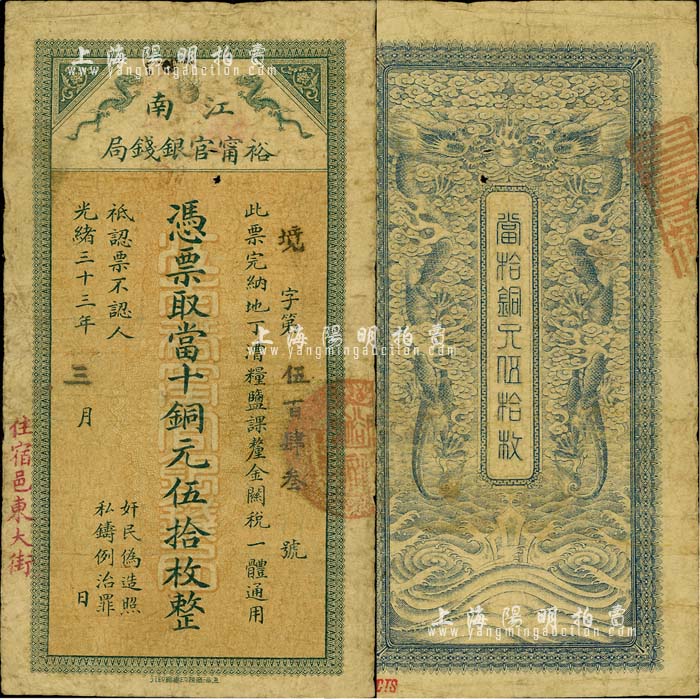 上海陽明拍賣
www.yangmingauction.com
江南
裕甯官銀錢局
字第伍百肆叁號
此票完納地丁漕糧鹽課釐金關稅一體通用
憑票取當十銅元伍拾枚整
祗認票不認人
光緒三十三年三月日
奸民偽造照
私鑄例治罪
住宿邑東大街
上海陽明拍賣
www.yangmingauction.com
當拾銅元伍拾枚
上海陽明拍賣
www.yangmingauction.com
上海陽明拍賣
www.yangmingauction.com